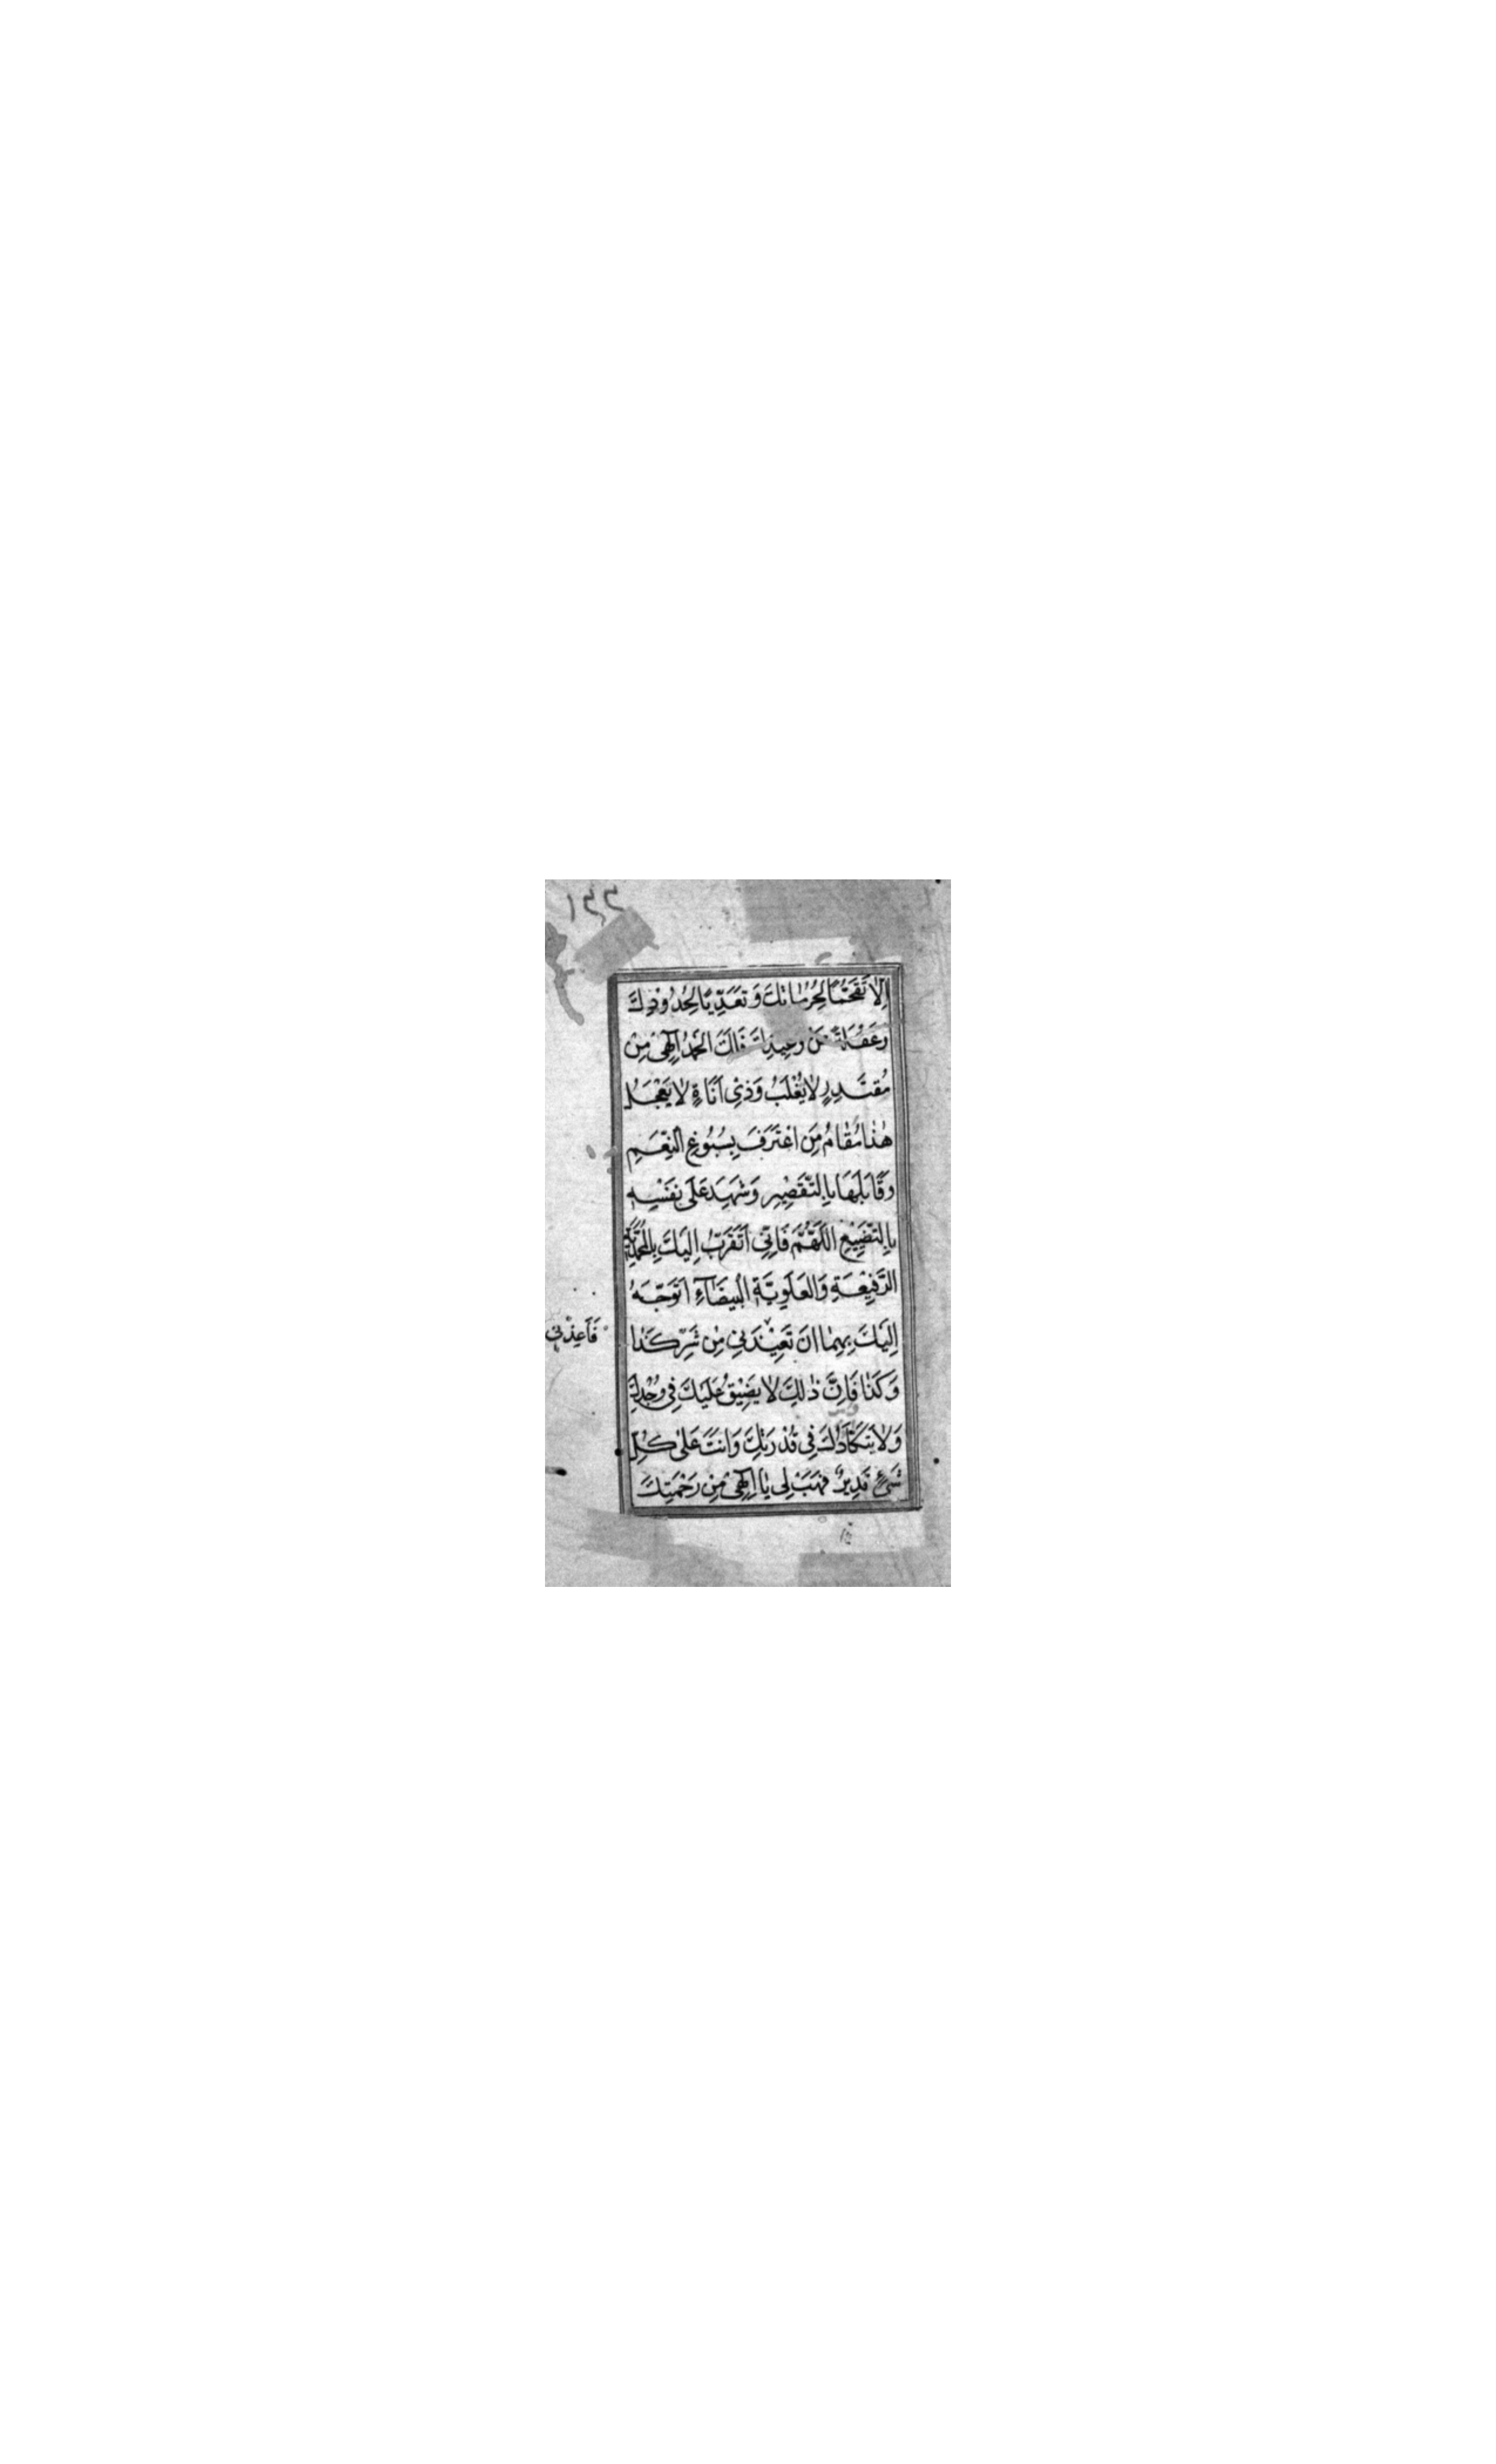 اِلّا تَقَحُّمًا لِحُرُمٰاتِكَ وَ تَعَدِّيًا لِحُدُودِكَ
وَغَفْلَةً عَنْ وَعِيدِكَ فَلَكَ الْحَمْدُ اِلٰهِي مِنْ
مُقْتَدِرٍ لٰا يُغْلَبُ وَذِي اَنَاةٍ لٰا يَعْجَلُ
هٰذٰا مَقٰامُ مَنِ اعْتَرَفَ بِسُبُوغِ النِّعَمِ
وَقَابَلَهَا بِالتَّقْصِيرِ وَشَهِدَ عَلَى نَفْسِهِ
بِالتَّضْيِيعِ اَللّٰهُمَّ فَاِنِّي اَتَقَرَّبُ اِلَيْكَ بِالْمُحَمَّدِيَّةِ
الرَّفِيْعَةِ وَالْعَلَوِيَّةِ الْبَيْضَآءِ اَتَوَجَّهُ
اِلَيْكَ بِهِمٰا اَنْ تُعِيْذَنِي مِنْ شَرِّ كَذٰا
فَاَعِذْنِي
وَكَذٰا فَاِنَّ ذٰلِكَ لٰا يَضِيْقُ عَلَيْكَ فِي وُجْدِكَ
وَلٰا يَتَكَأَّدُكَ فِي قُدْرَتِكَ وَاَنْتَ عَلٰى كُلِّ
شَيْءٍ قَدِيرٌ فَهَبْ لِي يٰا اِلٰهِي مِنْ رَحْمَتِكَ